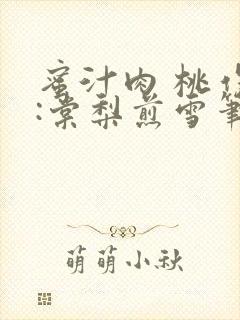 蜜汁肉桃作
:棠梨煎雪笔
萌萌小秋